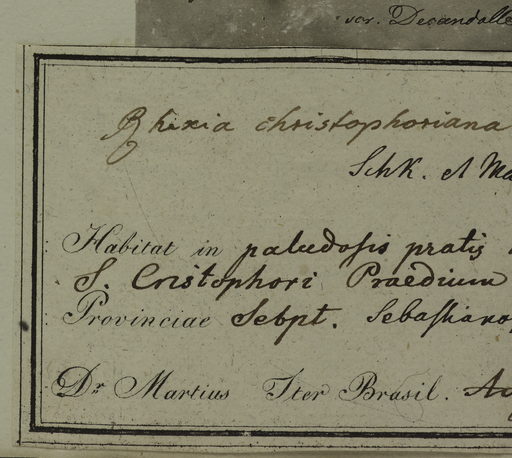 Decandolle
Rhexia christophoriana
Schk. et Ma
Habitat in paludosis pratis
S. Cristophori Praedium
Provinciae Sebpt. Sebastianop
Dr Martius Iter Brasil.